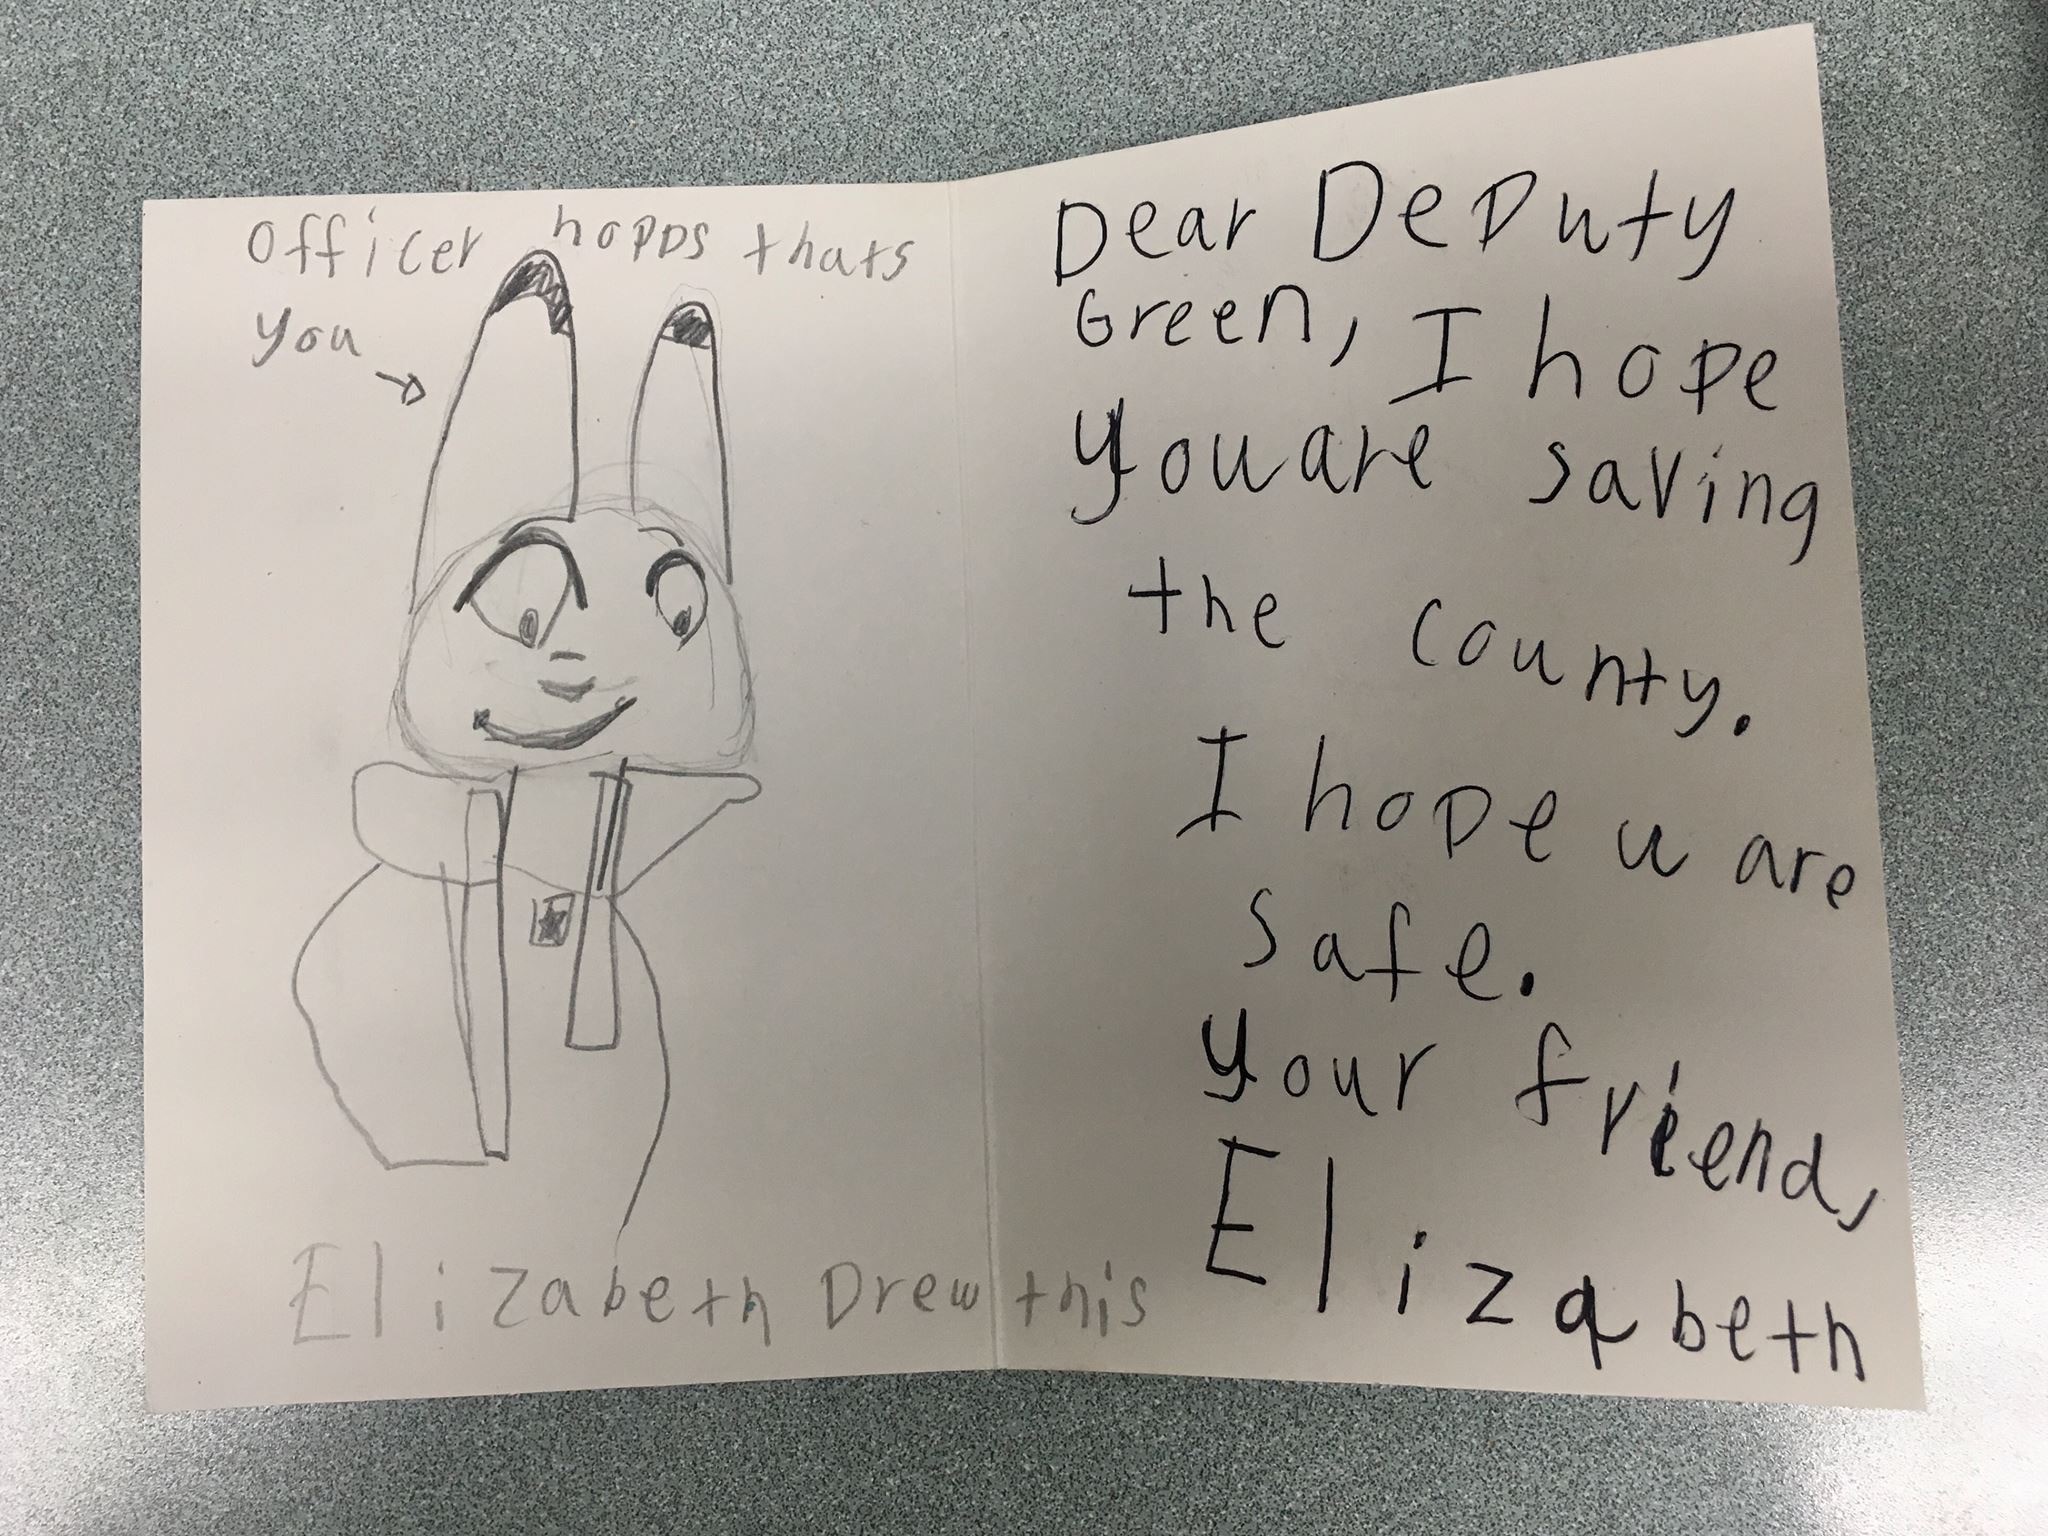 Officer hopps thats
you
Elizabeth Drew this
Dear Deputy
Green, I hope
you are saving
the county.
I hope u are
safe.
your friend,
Elizabeth